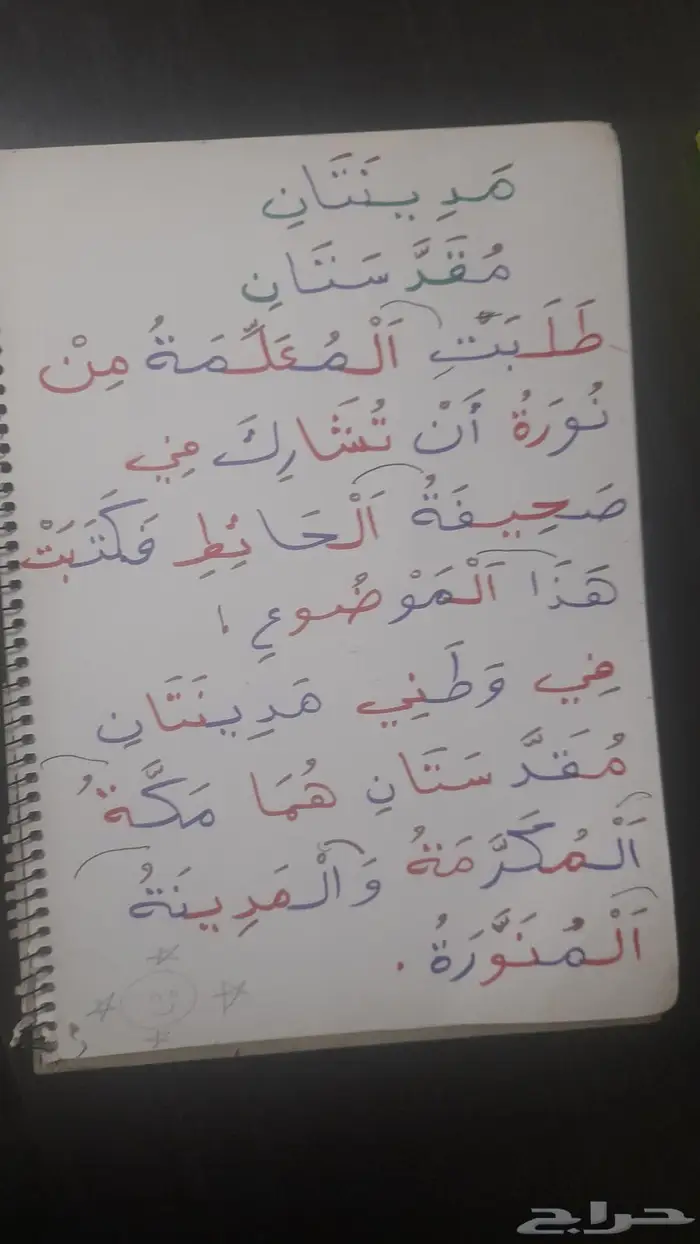 مَدِينَتَانِ
مُقَدَّسَتَانِ
طَلَبَتِ اَلْمُعَلِّمَةُ مِنْ
نُورَةُ أَنْ تُشَارِكَ فِي
صَحِيفَةُ اَلْحَائِطِ فَكَتَبَتْ
هَذَا اَلْمَوْضُوعِ .
فِي وَطَنِي مَدِينَتَانِ
مُقَدَّسَتَانِ هُمَا مَكَّةُ
اَلْمُكَرَّمَةُ وَالْمَدِينَةُ
اَلْمُنَوَّرَةُ .
حراج